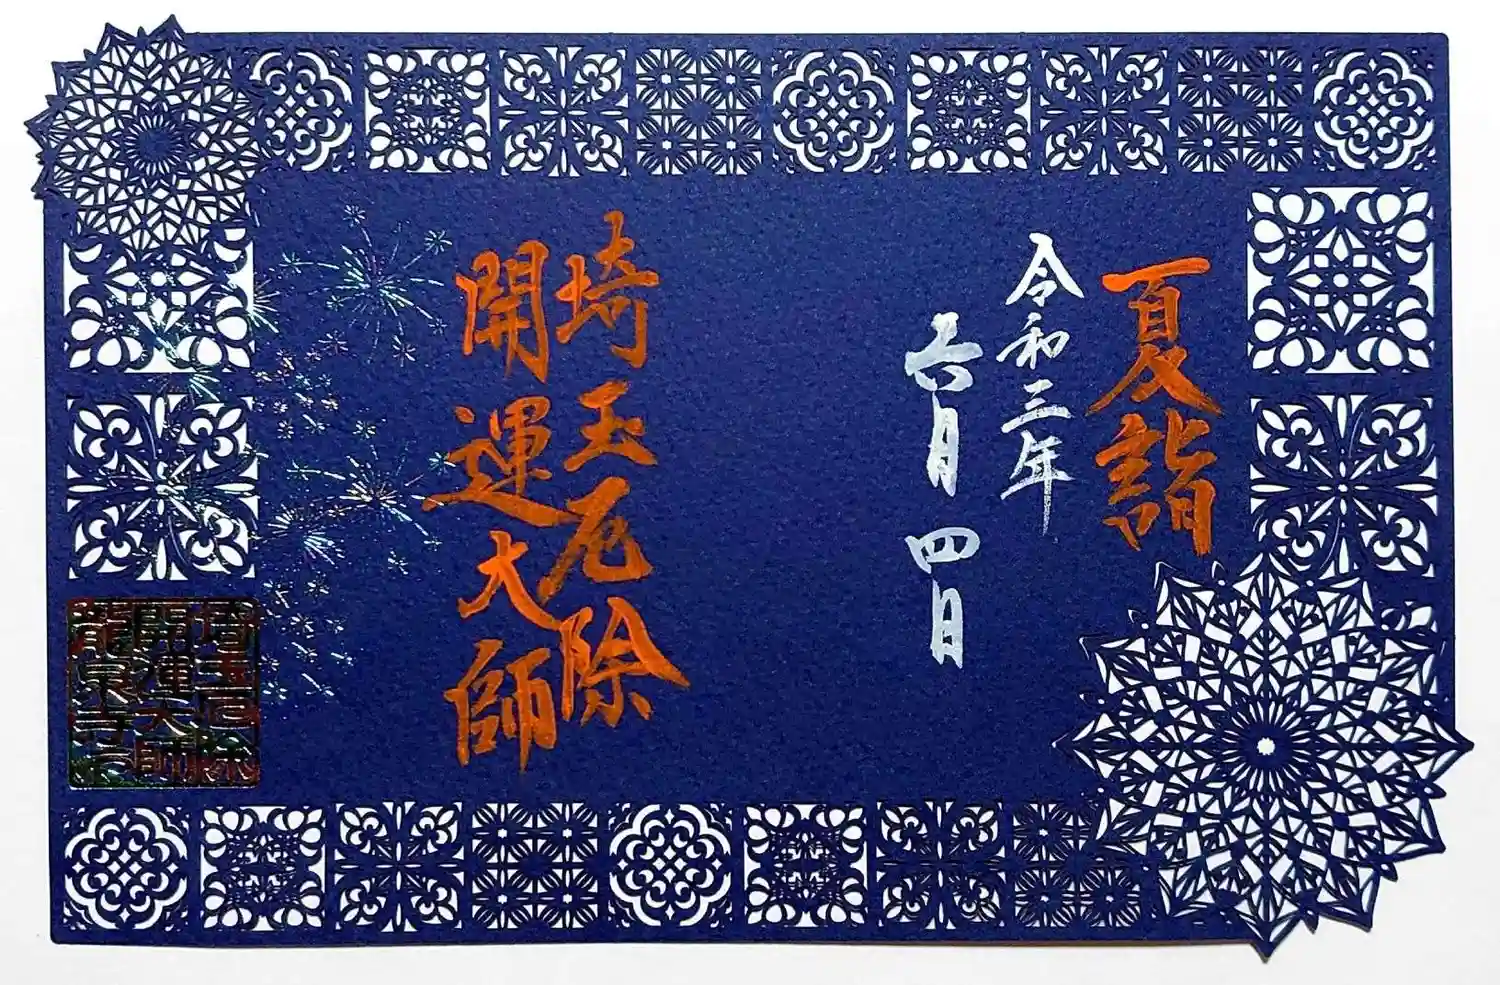 夏詣
令和三年
六月四日
埼玉厄除
開運大師
埼玉厄除
開運大師
龍泉寺